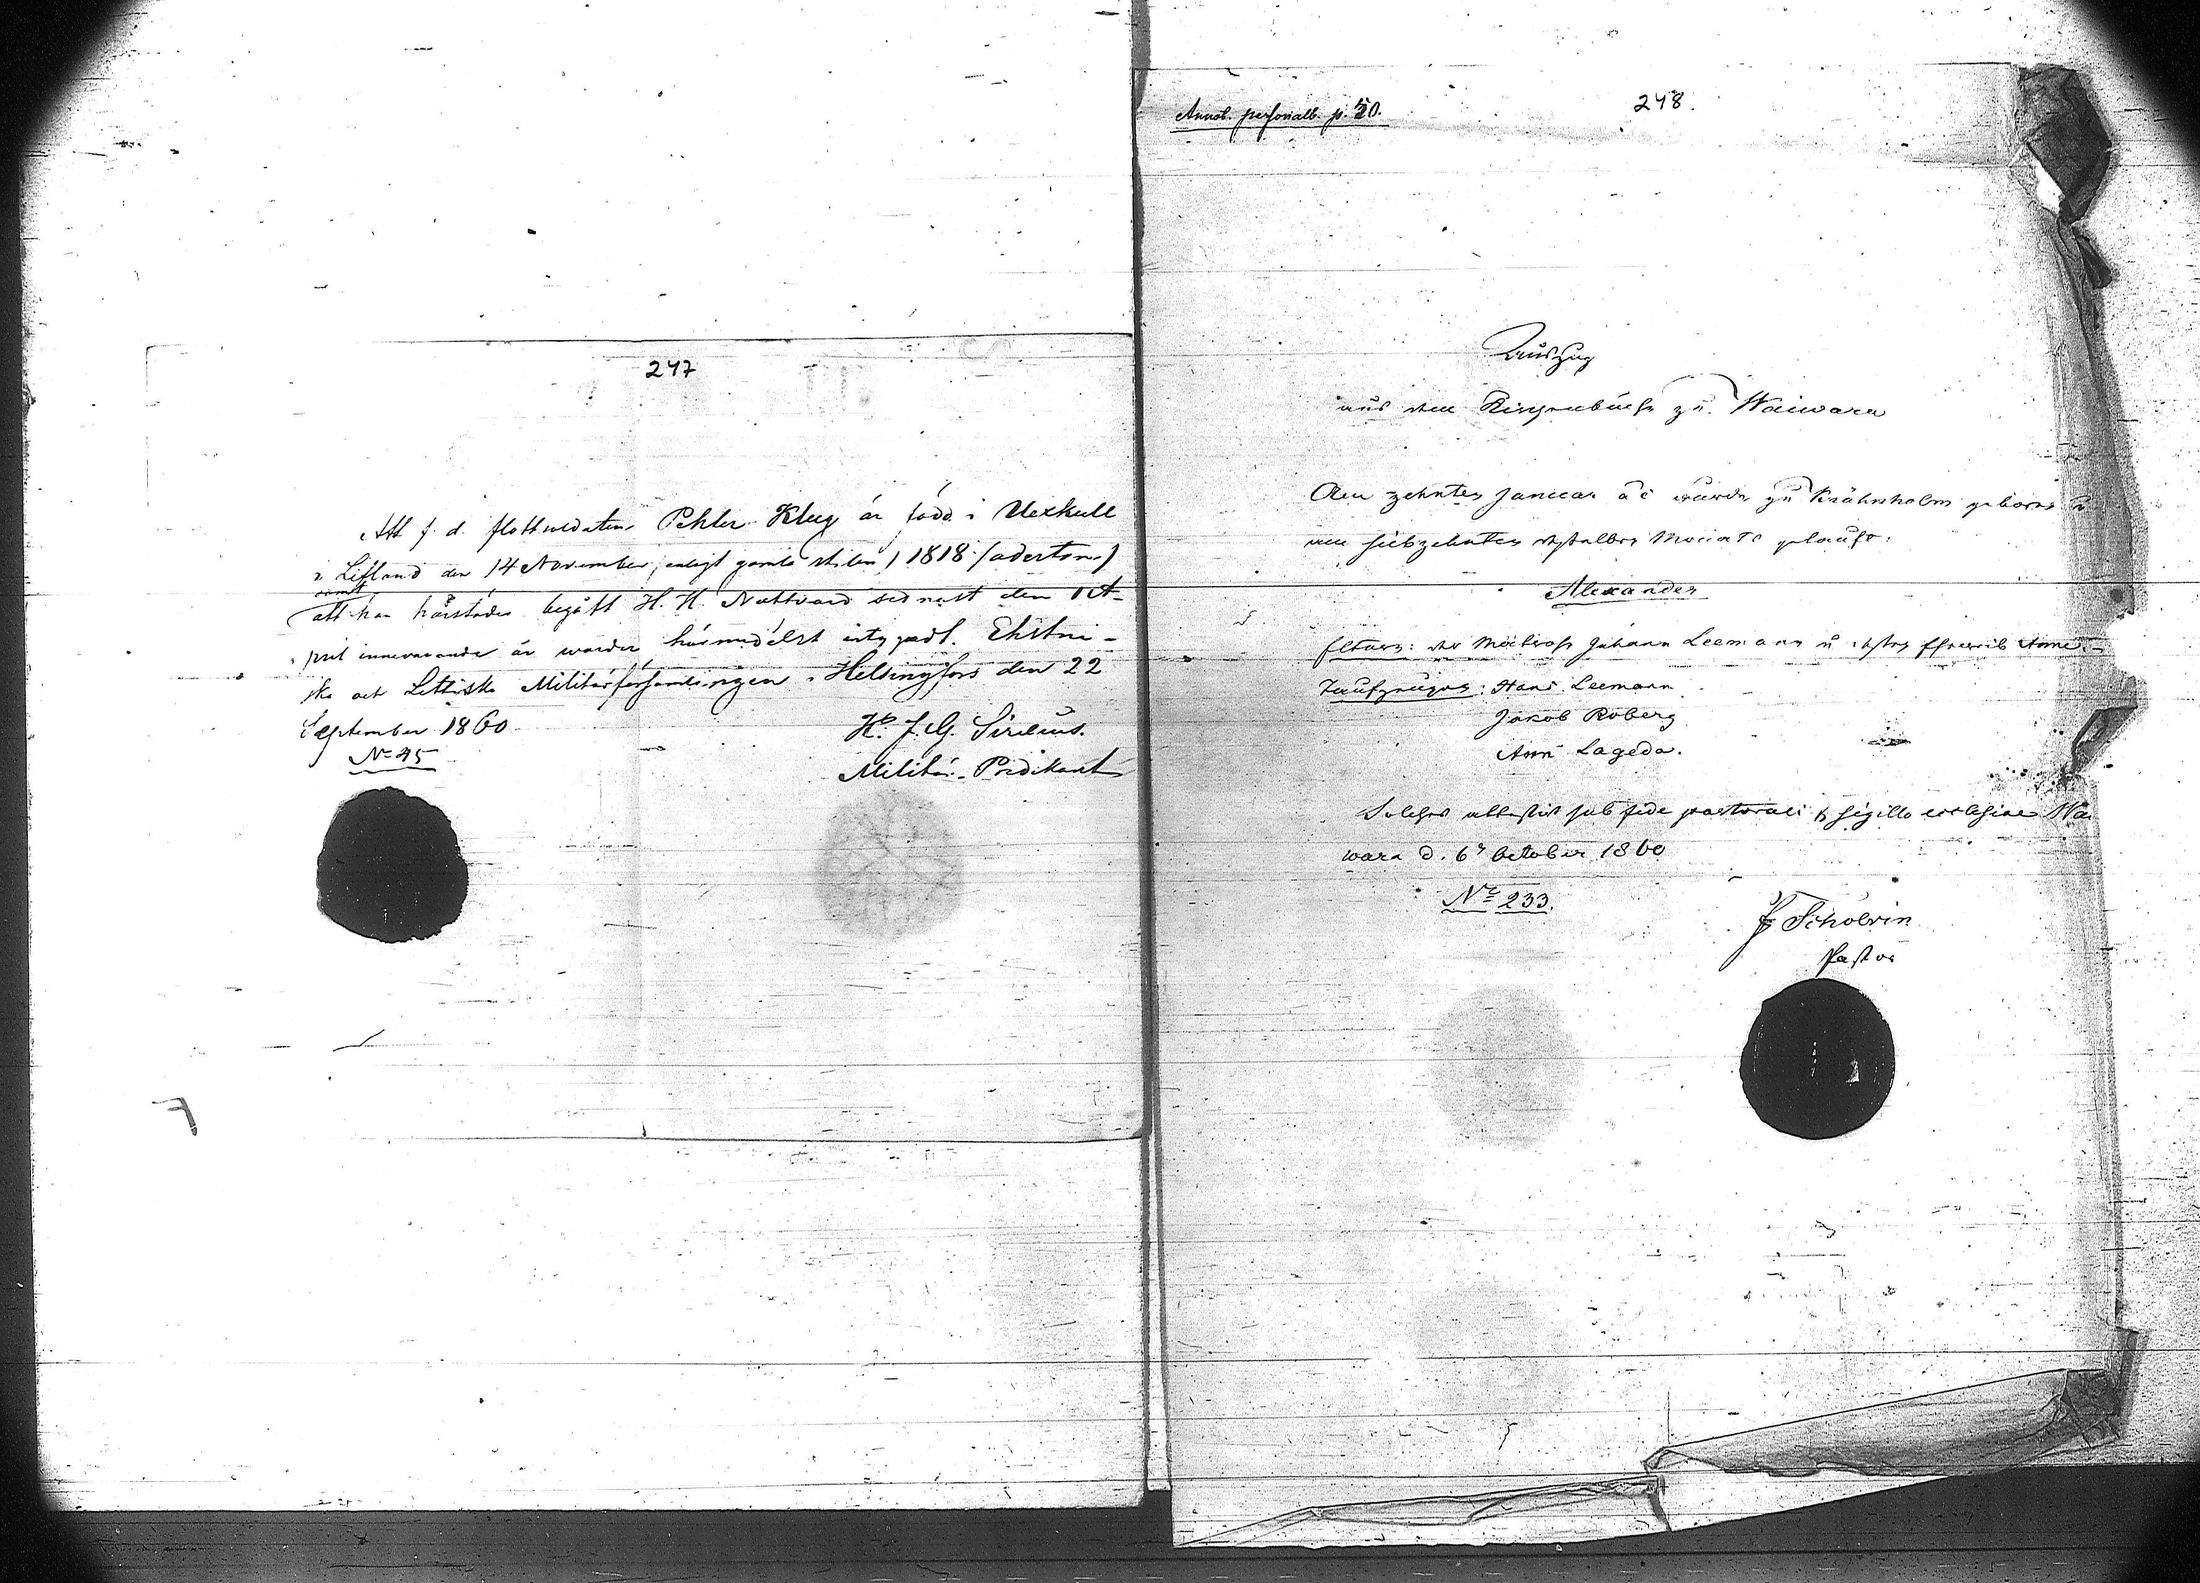 247
Att f. d. flottsoldaten Pehter Klug är född i Uexkull
i Lifland den 14 November, enligt gamla stilen, 1818 (aderton)
samt
att han härstädes begått H. H. Nattvard sednast den 1 A-
pril innevarande år warder härmedelst intygadt. Ehstni-
ska och Lettiska Militärförsamlingen i Helsingfors den 22
September 1860.
No 45
K. F. G. Sirelius.
Militär-Predikant
Annot. personalb. p. 50.
248.
Auszug
aus dem Kirchenbuche zu Waiwara
Den zehnten Januar a c wurde zu Krähnholm geboren u
am siebzehnten desselben Monats getauft:
Alexander
Eltern: der Matrose Johann Leemann u. dessen Eheweib Anna
Taufzeugen: Hans Leemann
Jakob Roberg
Ann Lageda.
Solches attestirt sub fide pastorali & sigillo ecclesiae Wai
wara d. 6r October 1860
No 233.
F Schölvin
Pastor